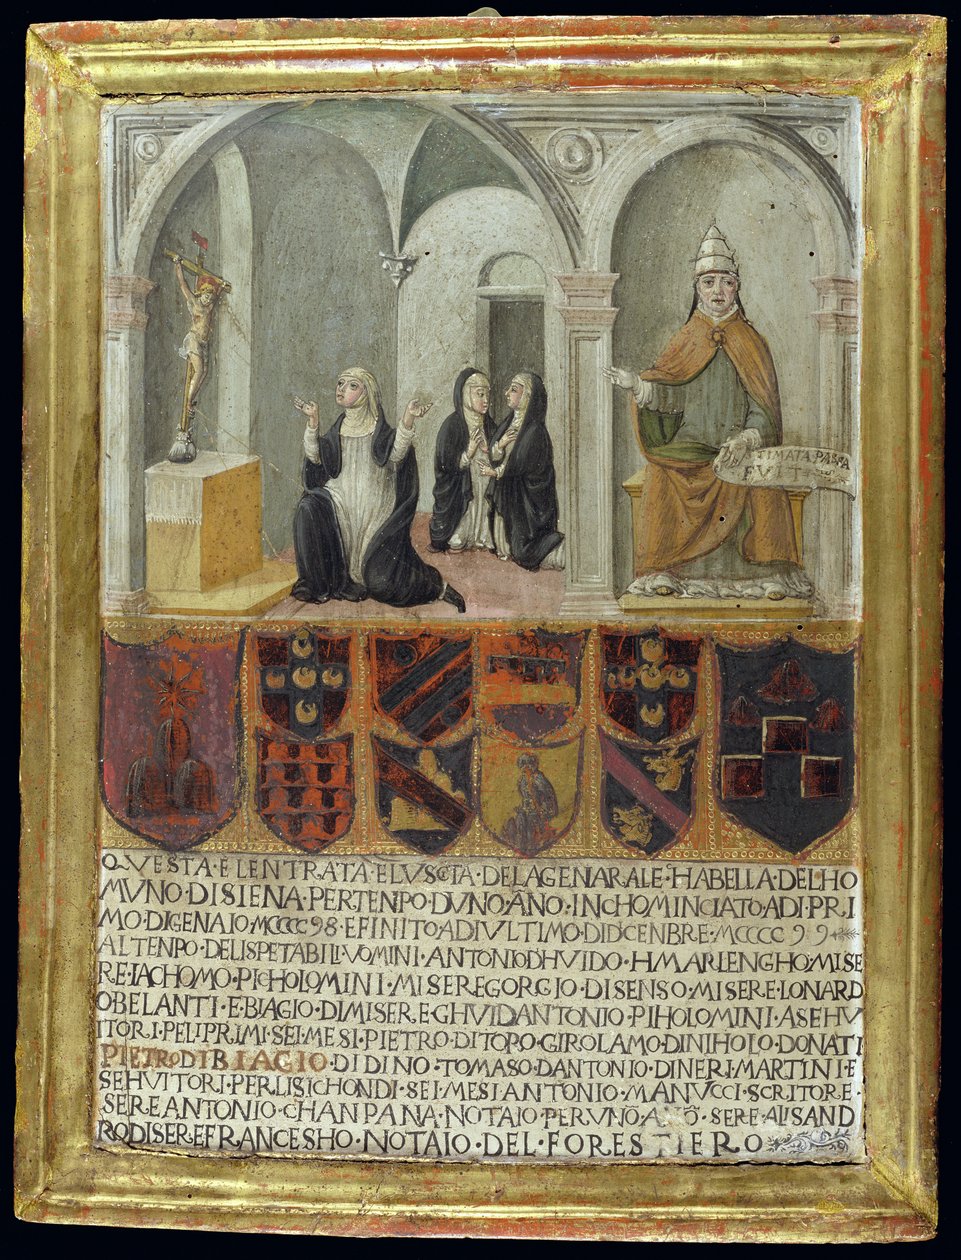 TIMATA·PASSA
FVIT
QVESTA·E·LENTRATA·E·LVSCTA·DELAGENARALE·HABELLA·DELHO
MVNO·DISIENA·PERTENPO·DVNO·ANO·INCHOMINCIATO·ADI·PRI
MO·DIGENAIO·MCCCC98·EFINITO·ADVLTIMO·DIDCENBRE·MCCCC99
ALTENPO·DELISPETABILI·VOMINI·ANTONIO·DHVIDO·HMARLENGHO·MISE
RE·IACHOMO·PICHOLOMINI·MISERE·GORGIO·DISENSO·MISERE·LONARD
OBELANTI·EBIAGIO·DIMISERE·GHVIDANTONIO·PIHOLOMINI·ASEHV
ITORI·PELIPRIMI·SEI·MESI·PIETRO·DITOPO·GIROLAMO·DINIHOLO·DONATI
PIETRO·DIBIAGIO·DIDINO·TOMASO·DANTONIO·DINERI·MARTINI·E
SEHVITORI·PERLISICHONDI·SEI·MESI·ANTONIO·MANVCCI·SCRITORE·
SERE·ANTONIO·CHANPANA·NOTAIO·PERVNO·SERE·ALISAND
RO·DISERE·FRANCESHO·NOTAIO·DEL·FORESTIERO